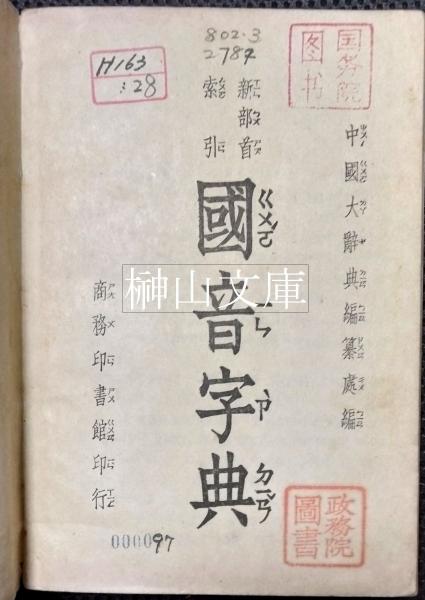 802·3
2787
H163
:28
国务院
图书
中國大辭典編纂處編
新部首
索引
國音字典
ㄍㄨㄛˊ
ㄧㄣ
ㄗˋ
ㄉㄧㄢˇ
商務印書館印行
榊山文庫
政務院
圖書
000097